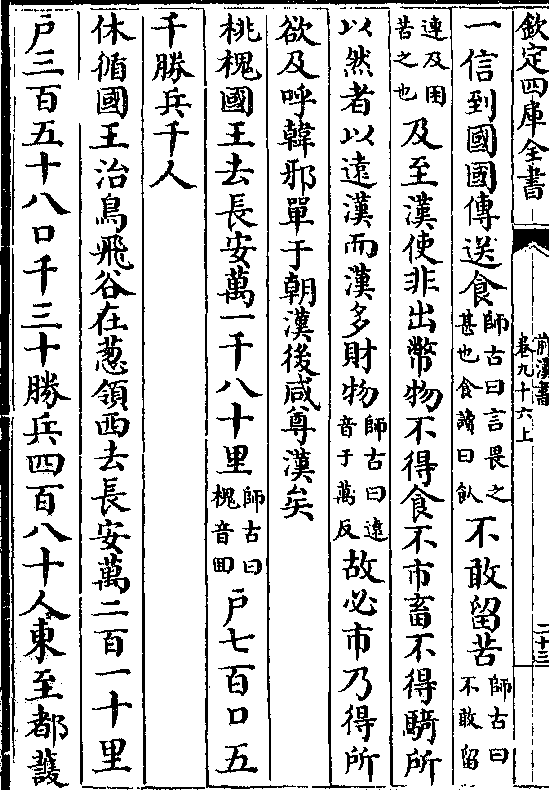 欽定四庫全書
前漢書
卷九十六上
二十三
一信到國國傳送食師古曰言畏之甚也食讀曰飤不敢留苦師古曰不敢留
連及困苦之也及至漢使非出幣物不得食不市畜不得騎所
以然者以遠漢而漢多財物師古曰遠音于萬反故必市乃得所
欲及呼韓邪單于朝漢後咸尊漢矣
桃槐國王去長安萬一千八十里師古曰槐音回戶七百口五
千勝兵千人
休循國王治鳥飛谷在葱領西去長安萬二百一十里
戶三百五十八口千三十勝兵四百八十人東至都護